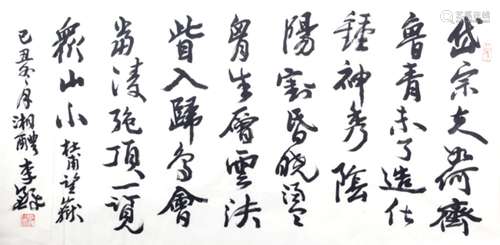 岱宗夫如何齊
魯青未了造化
鍾神秀陰
陽割昏曉盪
胸生層雲決
眥入歸鳥會
當凌絕頂一覽
眾山小 杜甫望嶽
己丑冬月湘醴李